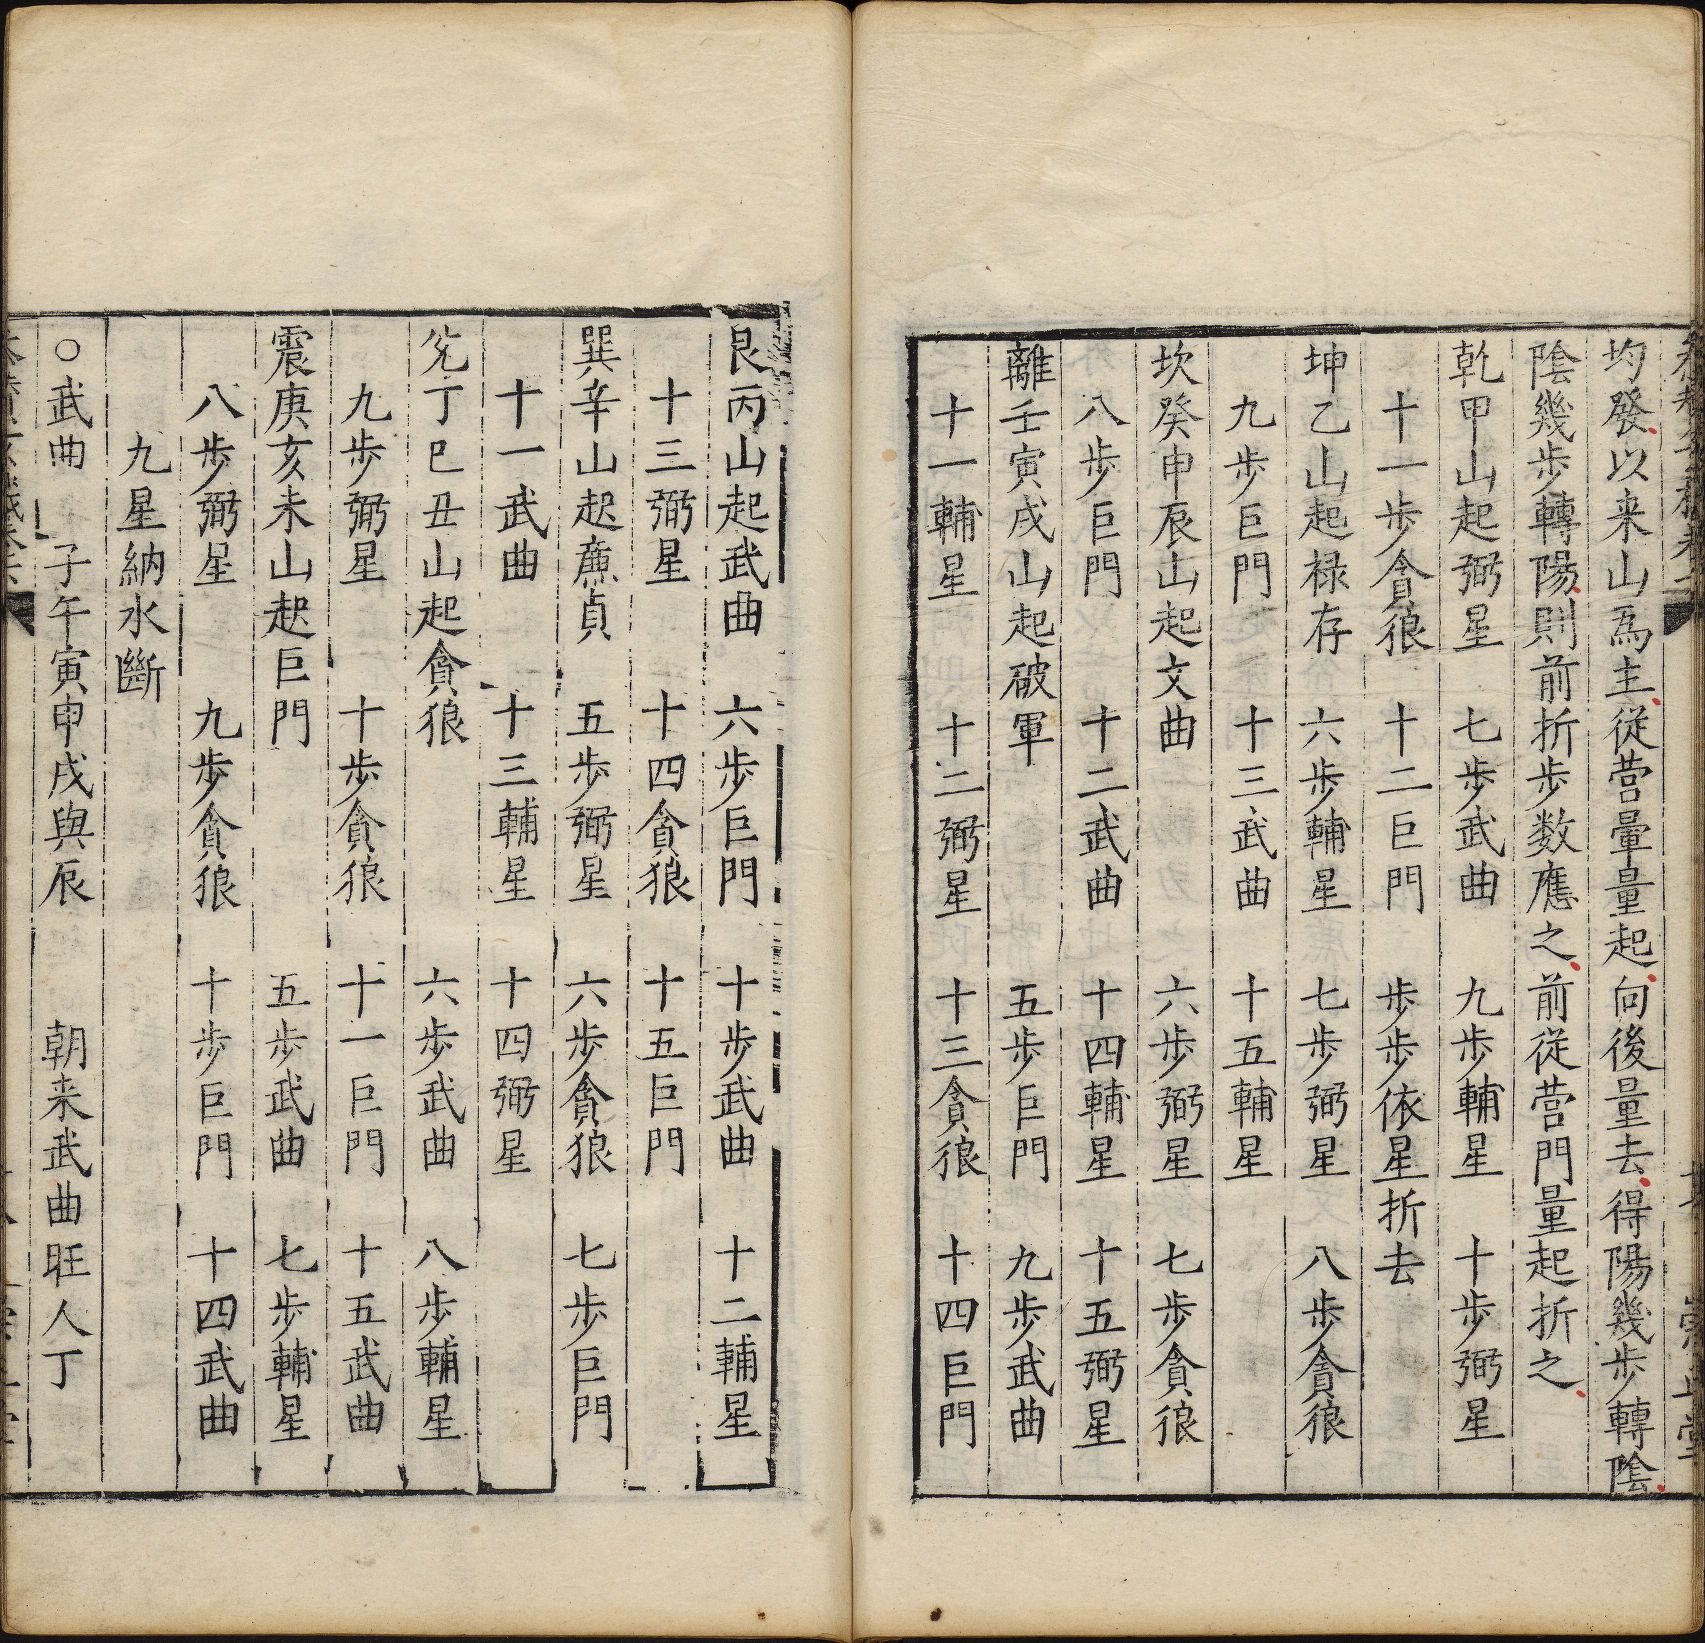 均發以来山為主從營暈量起向後量去得陽幾步轉陰
陰幾步轉陽則前折步数應之前從营門量起折之
乾甲山起弼星　七步武曲　九步輔星　十步弼星
十一步貪狼　十二巨門　步步依星折去
坤乙山起禄存　六步輔星　七步弼星　八步貪狼
九步巨門　十三武曲　十五輔星
坎癸申辰山起文曲　六步弼星　七步貪狼
八步巨門　十二武曲　十四輔星　十五弼星
離壬寅戌山起破軍　五步巨門　九步武曲
十一輔星　十二弼星　十三貪狼　十四巨門
崇正堂
艮丙山起武曲　六步巨門　十步武曲　十二輔星
十三弼星　十四貪狼　十五巨門
巽辛山起亷貞　五步弼星　六步貪狼　七步巨門
十一武曲　十三輔星　十四弼星
兊丁巳丑山起貪狼　六步武曲　八步輔星
九步弼星　十步貪狼　十一巨門　十五武曲
震庚亥未山起巨門　五步武曲　七步輔星
八步弼星　九步貪狼　十步巨門　十四武曲
九星納水斷
○武曲　子午寅申戌與辰　朝来武曲旺人丁